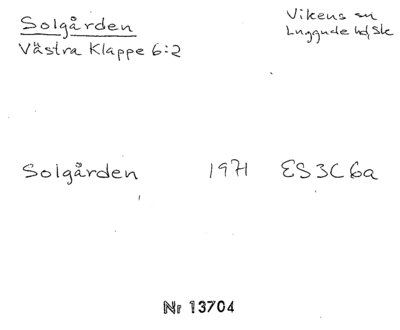 Solgården
Västra Klappe 6:2
Vikens sn
Luggude hd, Sk
Solgården 1971 ES3C6a
Nr 13704